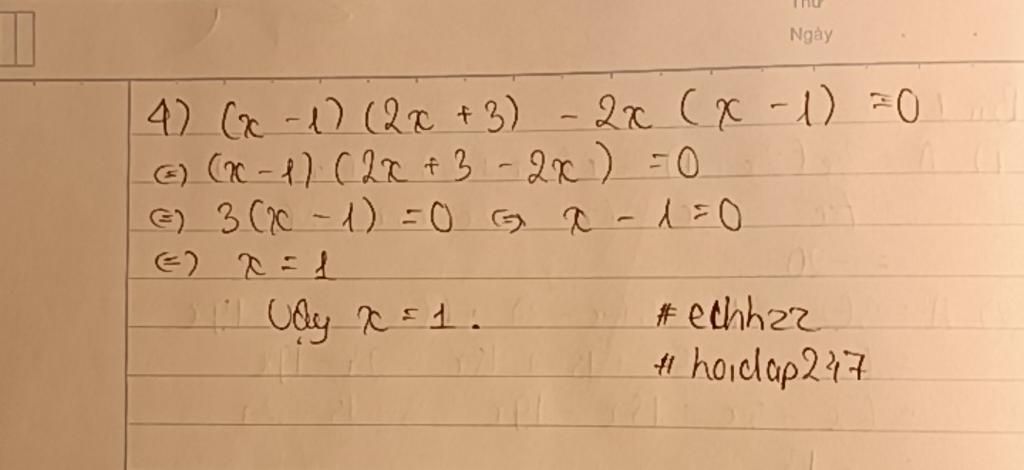 Thứ
Ngày
4) (x - 1) (2x + 3) - 2x (x - 1) = 0
(=) (x - 1) . (2x + 3 - 2x) = 0
(=) 3(x - 1) = 0 (=) x - 1 = 0
(=) x = 1
Vậy x = 1 .
# echhzz
# hoidap247